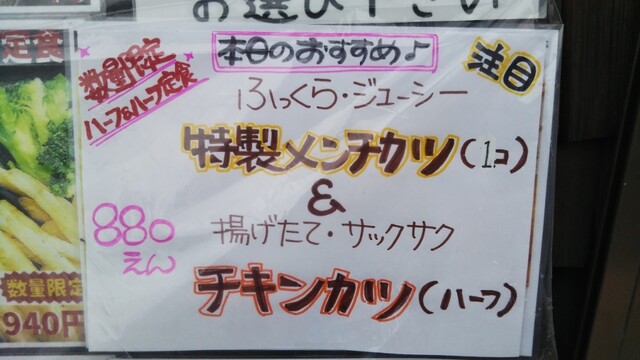 お選び下さい
定食
数量限定
ハーフ&ハーフ定食
本日のおすすめ♪
注目
ふっくら・ジューシー
特製メンチカツ(1コ)
&
880
えん
揚げたて・サックサク
チキンカツ(ハーフ)
数量限定
940円